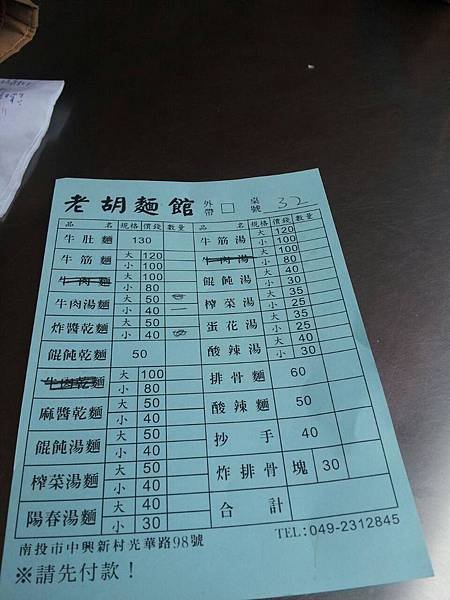 老胡麵館 外帶□ 桌號 32
品名 規格 價錢 數量 品名 規格 價錢 數量
牛肚麵 130 牛筋湯 大 120
小 100
牛筋麵 大 120
小 100
牛肉湯 大 100
小 80
牛肉麵 大 100
小 80
餛飩湯 大 40
小 30
牛肉湯麵 大 50
小 40 一
榨菜湯 大 35
小 25
炸醬乾麵 大 50
小 40
蛋花湯 大 35
小 25
餛飩乾麵 50 酸辣湯 大 40
小 30
牛肉乾麵 大 100
小 80
排骨麵 60
麻醬乾麵 大 50
小 40
酸辣麵 50
餛飩湯麵 大 50
小 40
抄手 40
榨菜湯麵 大 50
小 40
炸排骨塊 30
陽春湯麵 大 40
小 30
合計
南投市中興新村光華路98號 TEL:049-2312845
※請先付款！